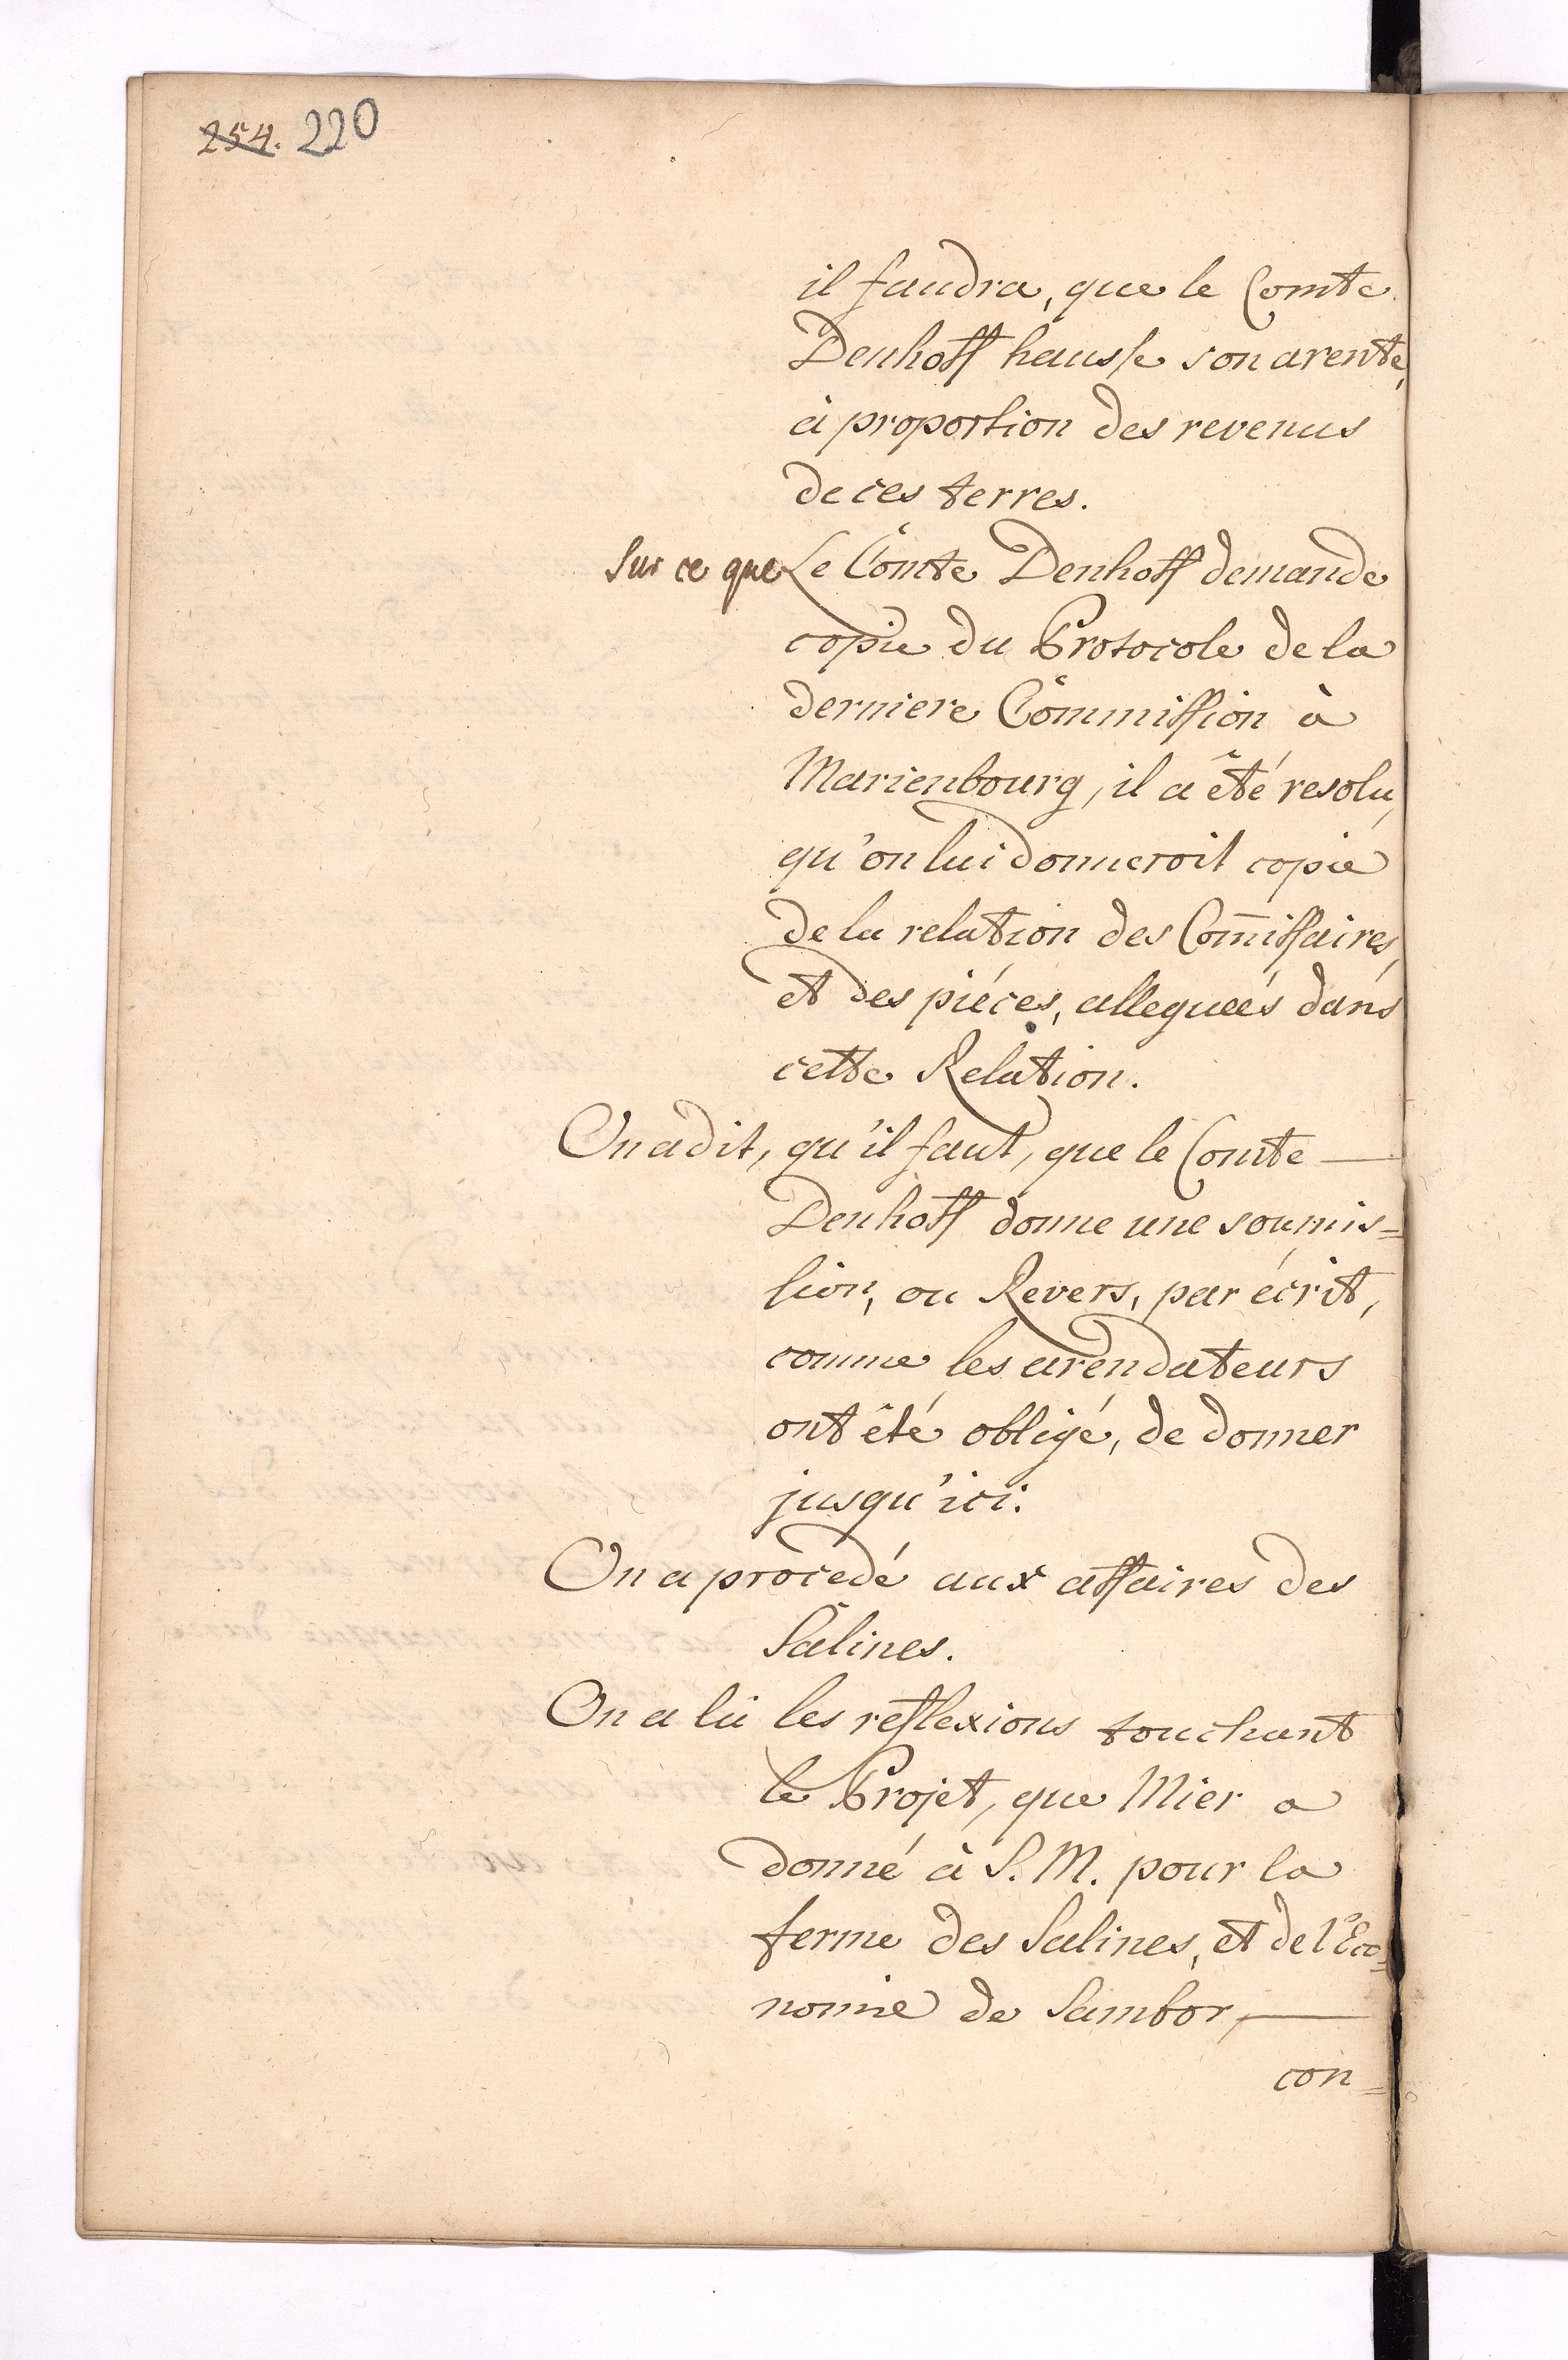 254. 220
il faudra, que le Comte
Denhoff hausse son arente,
à proportion des revenus
de ces terres.
Sur ce que Le Comte Denhoff demande
copie du Protocole de la
derniere Commission à
Marienbourg, il a êté resolu,
qu'on lui donneroit copie
de la relation des Com̄issaires,
et des piéces, alleguées dans
cette Relation.
On a dit, qu'il faut, que le Comte —
Denhoff donne une soumis=
sion, ou Revers, par écrit,
comme les arendateurs
ont êté obligé, de donner
jusqu'ici.
On a procedé aux affaires des
Salines.
On a lû les reflexions touchant
le Projet, que Mier a
donné à S. M. pour la
ferme des Salines, et de l'Eco=
nomie de Sambor, —
con=